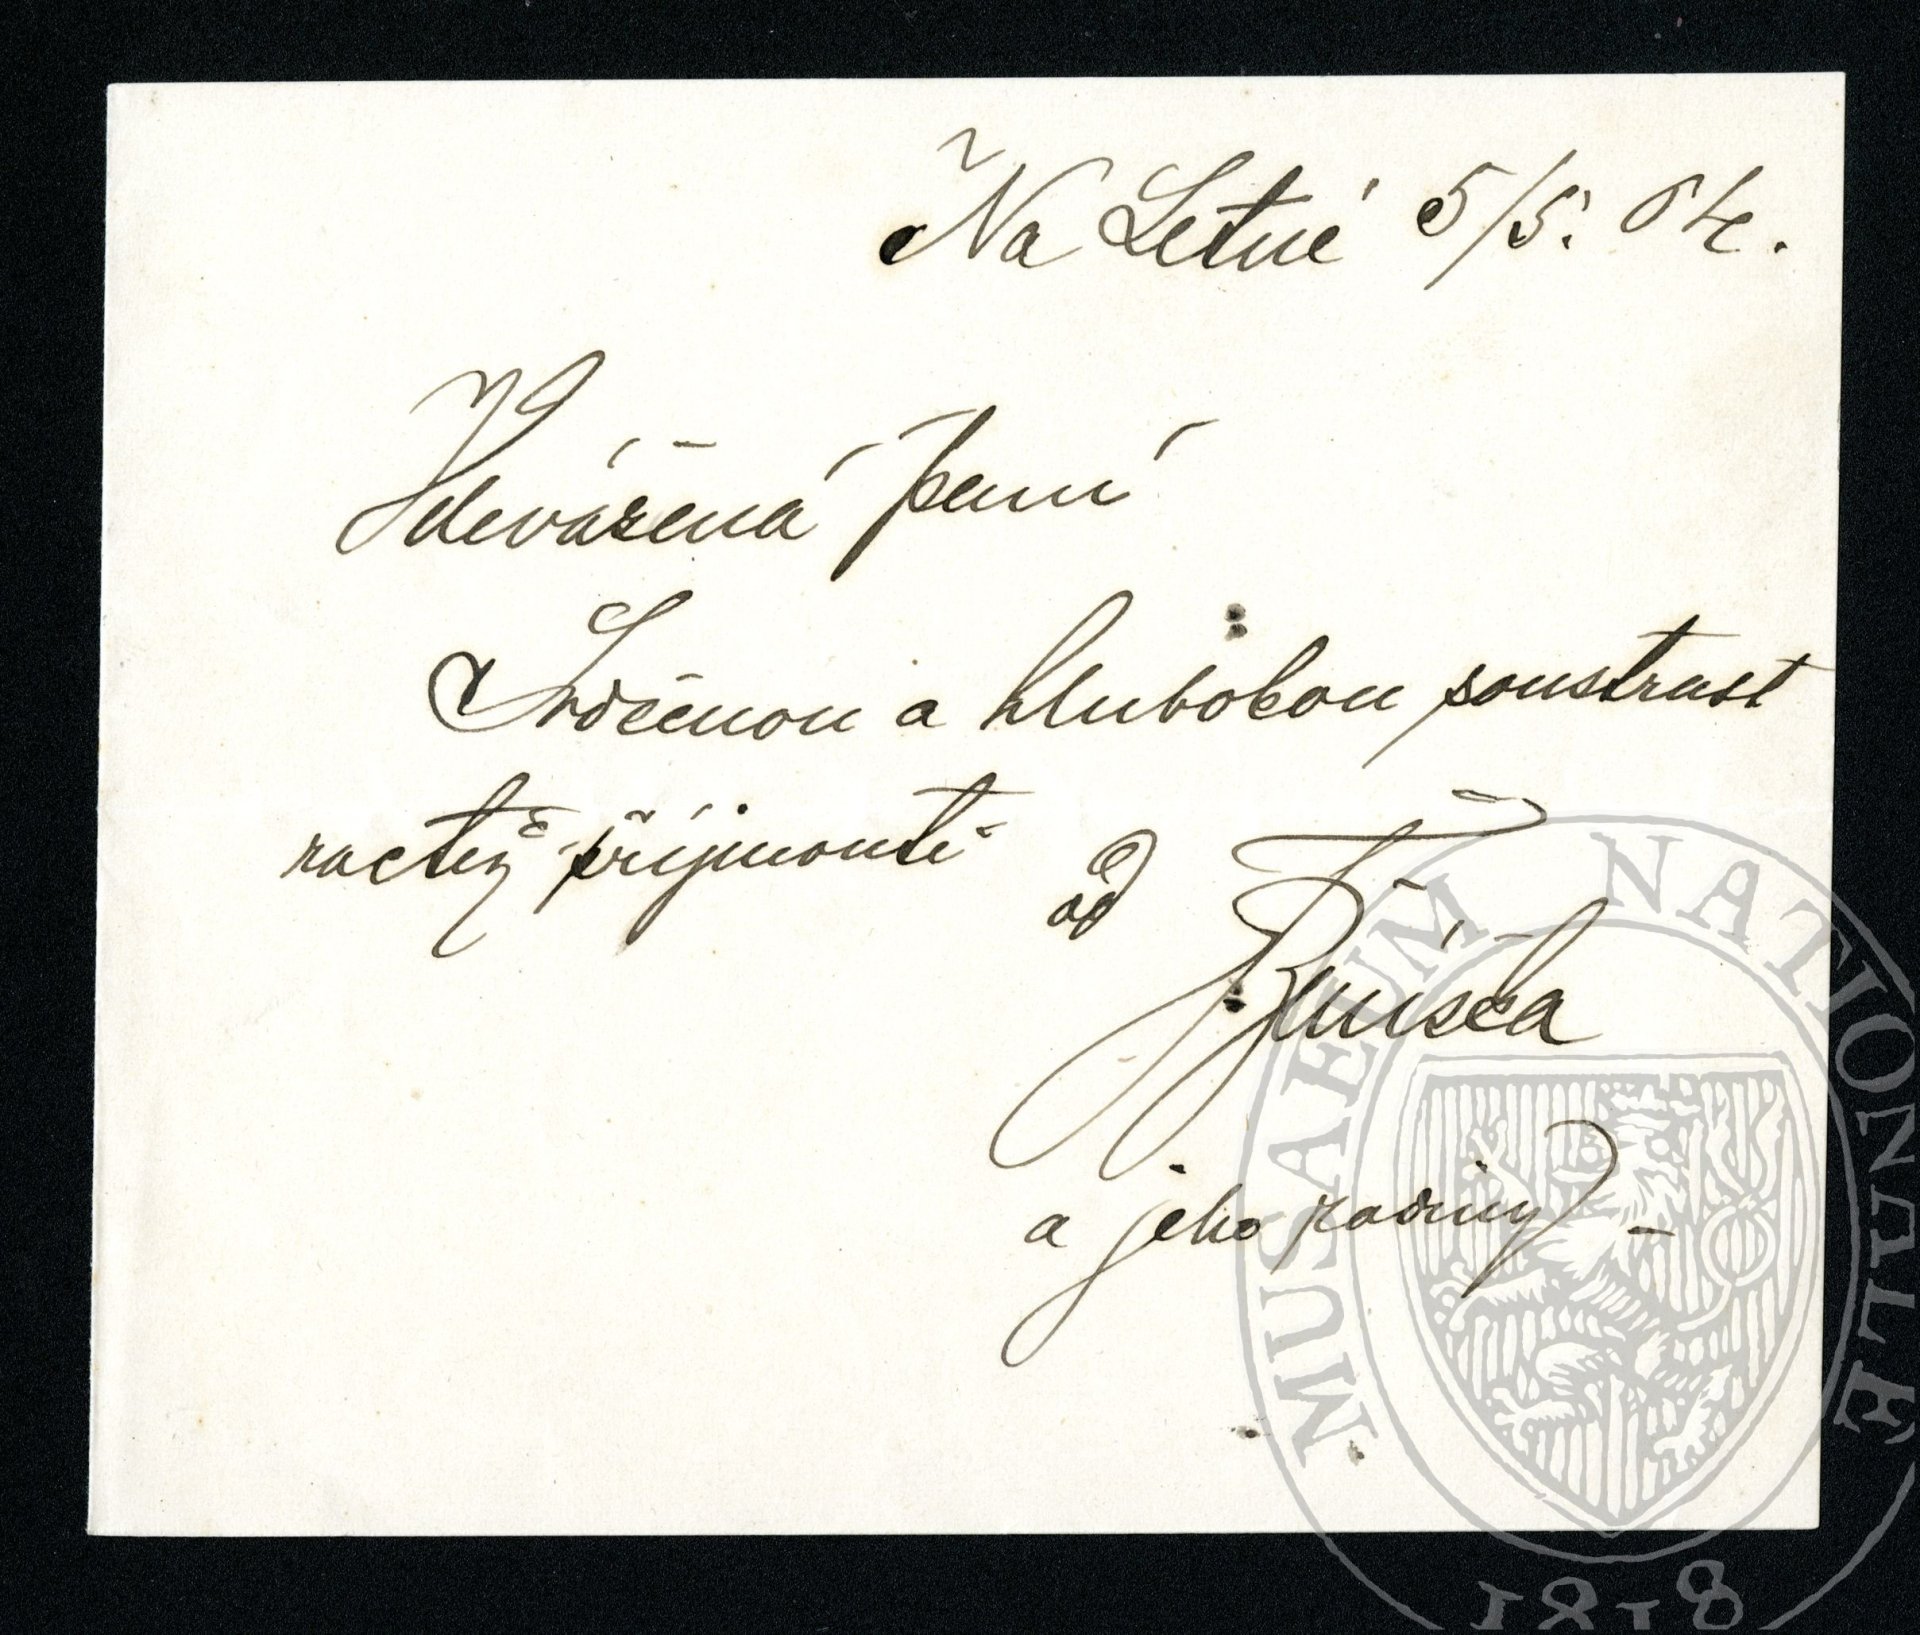 Na Letné 5/5. 04.
Velevážená paní
Srdečnou a hlubokou soustrast
ractež přijmouti od
a jeho rodiny –
MUSAEUM NATIONALE
1818